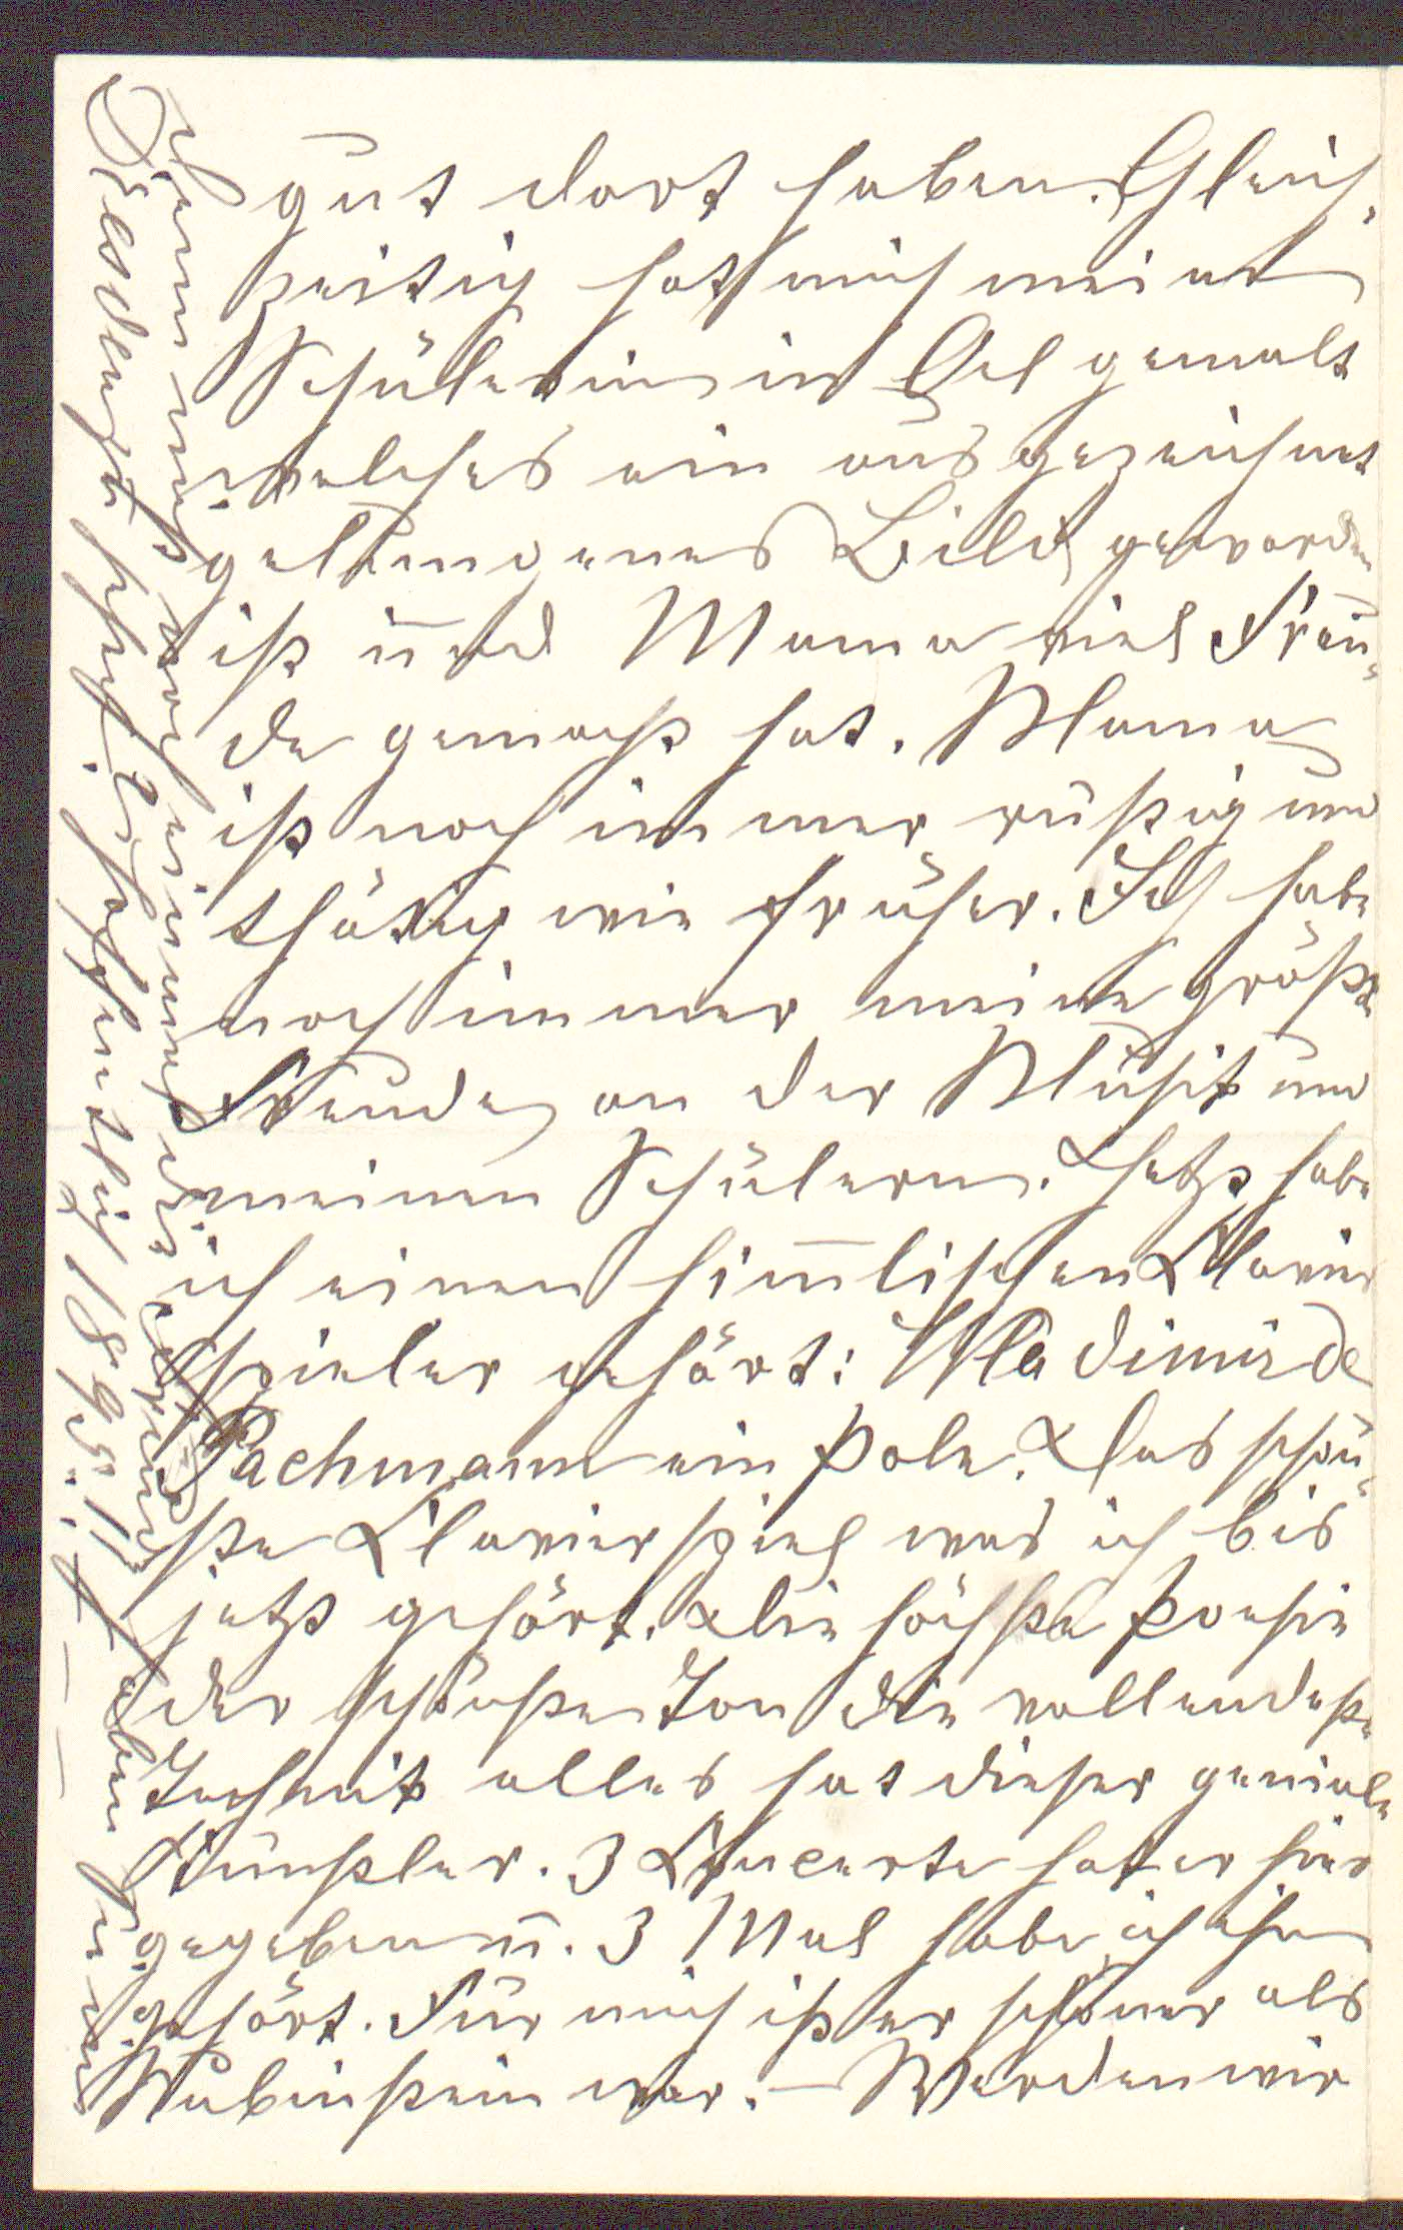 gut dort haben. Gleich-
zeitig hat mich meine
Schülerin in Oel gemalt
welches ein ausgezeichnet
gelungenes Bild geworden
ist und Mama viel Freu-
de gemacht hat. Mama
ist noch immer rüstig und
thätig wie früher. Ich habe
noch immer meine größte
Freude an der Musik und
meinen Schülern. Jetzt habe
ich einen him̅lischen Klavier
spieler gehört: Wladimir de
Pachmann ein Pole. Das schön-
ste Klavierspiel was ich bis
jetzt gehört. Die höchste Poesie
der schönste Ton die vollendeste
Technik alles hat dieser geniale
Künstler. 3 Concerte hat er hier
gegeben u. 3 Mal habe ich ihn
gehört. Für mich ist er schöner als
Rubinstein war. – Werden wir
uns noch einmal
1895!!